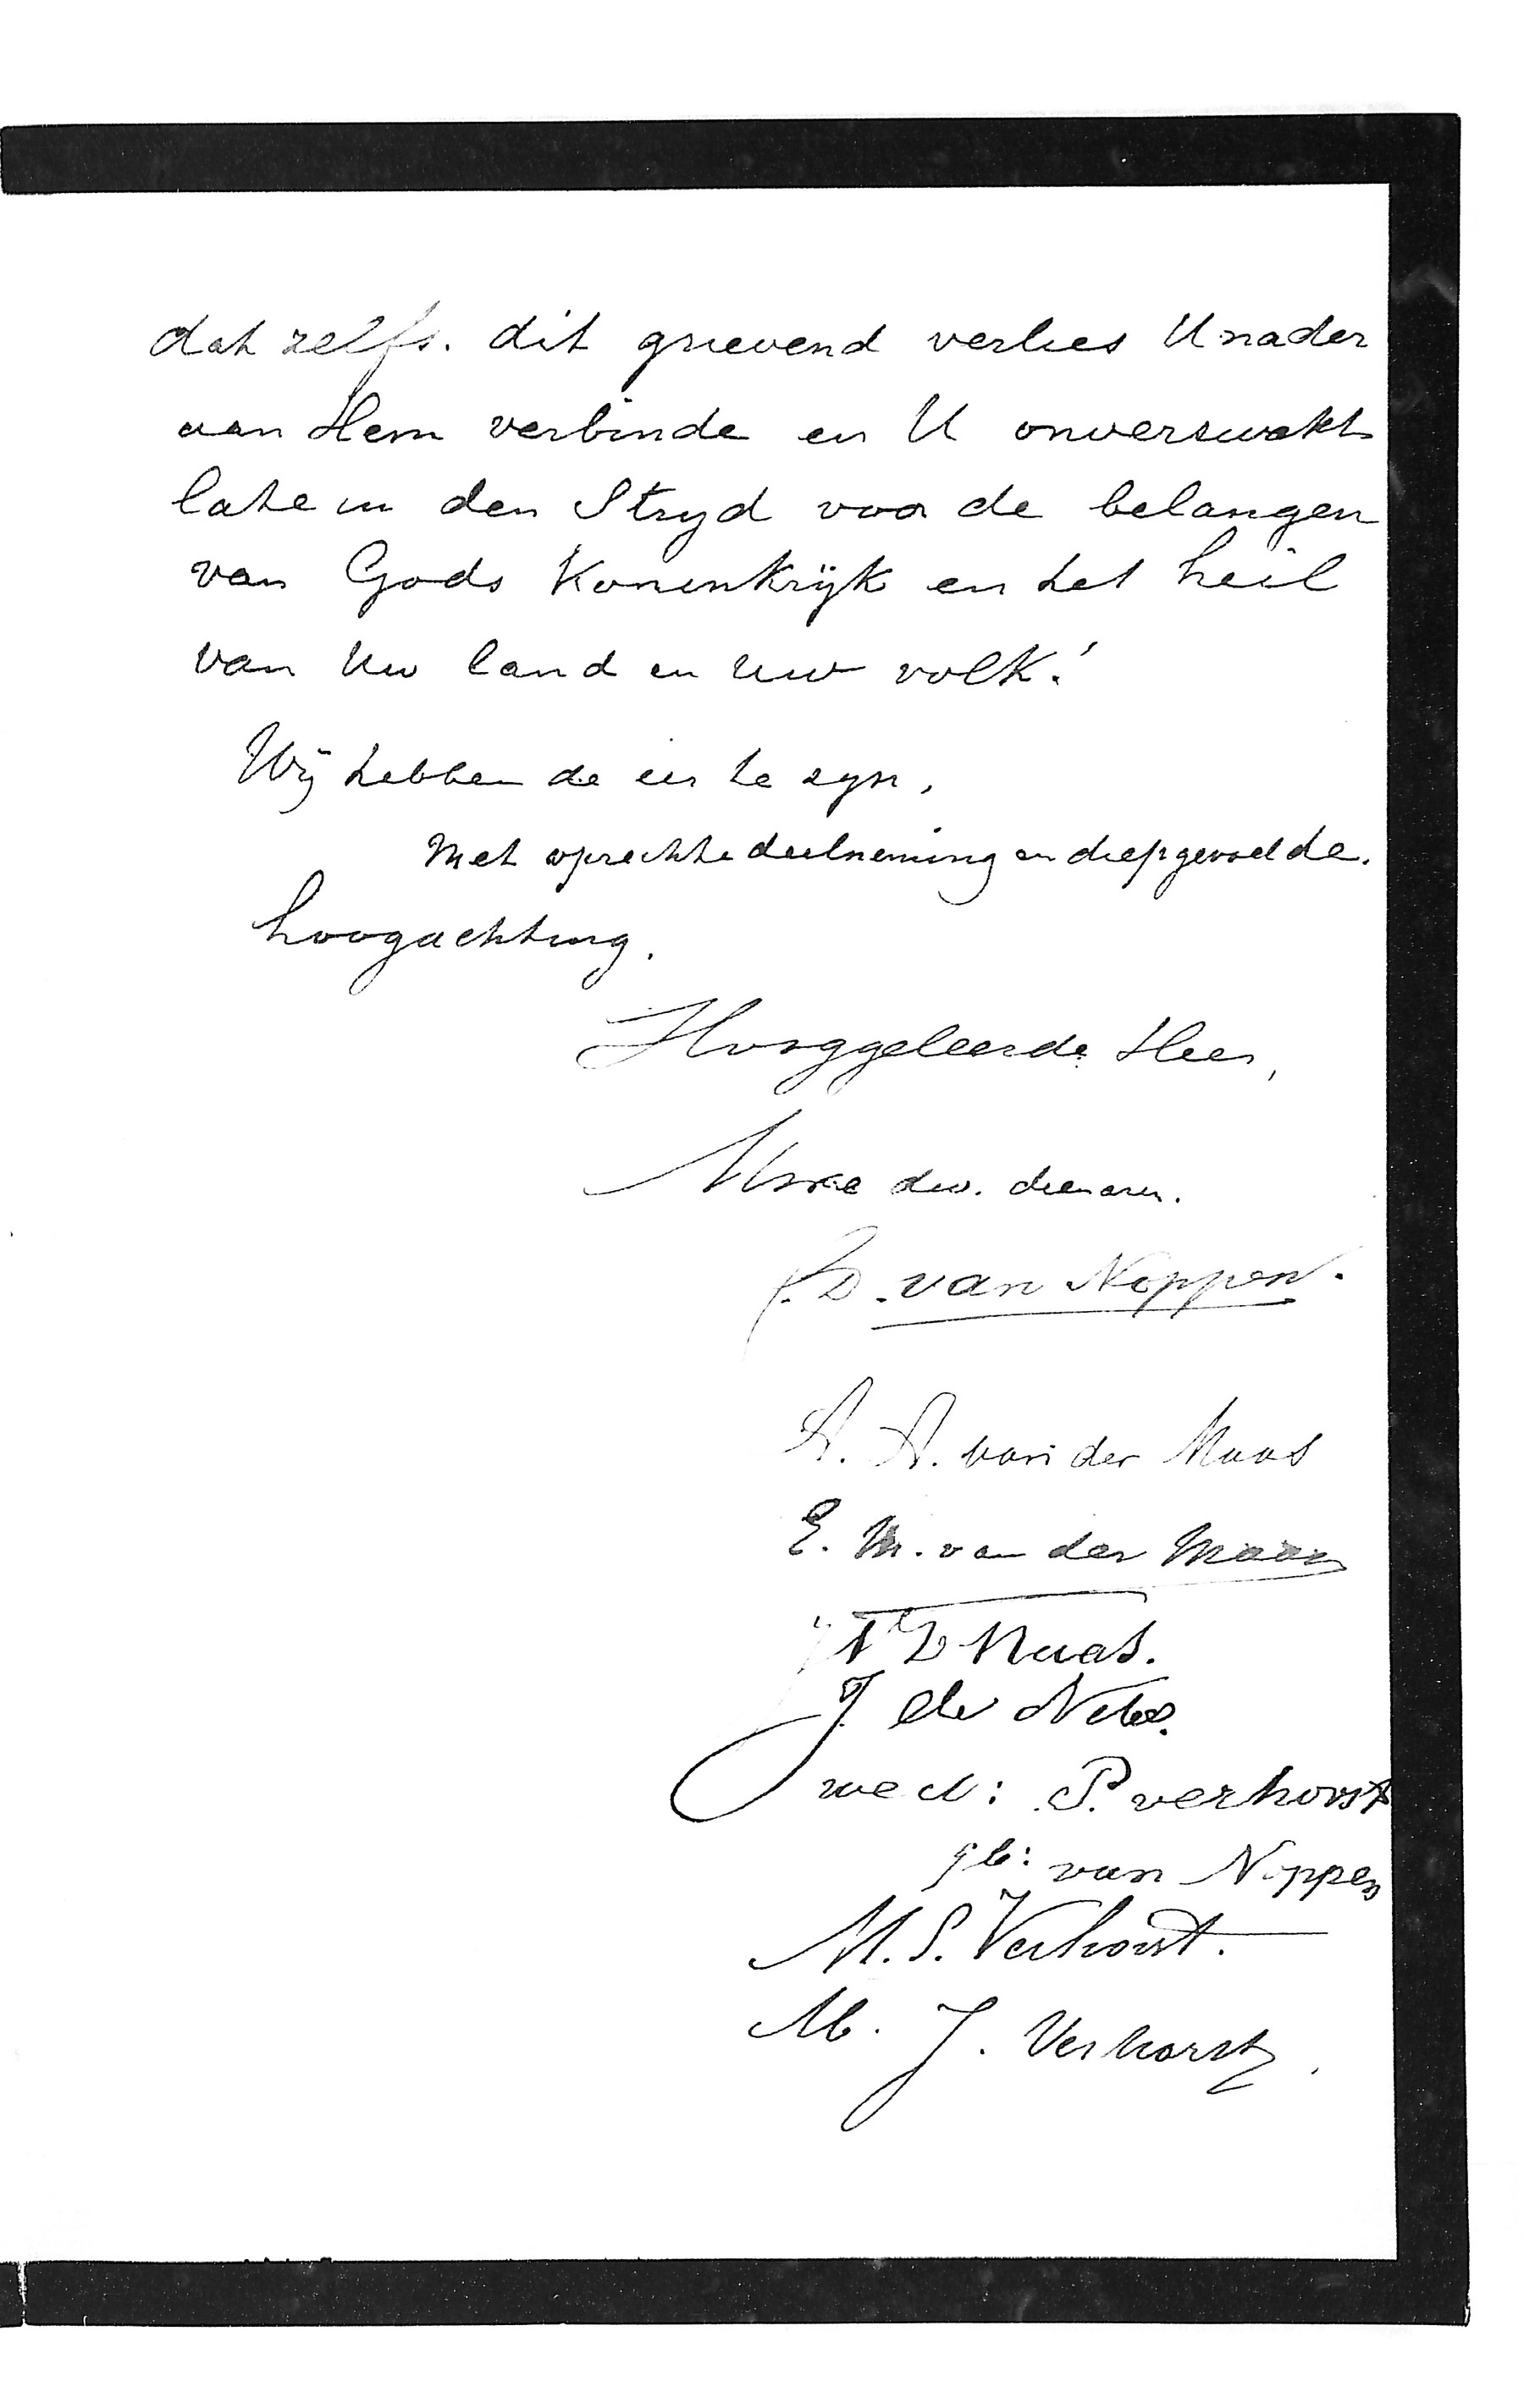 dat zelfs. dit grievend verlies U nader
aan Hem verbinde en U onverzwakt
late in den Stryd voor de belangen
van Gods Koninkrijk en het heil
van Uw land en Uw volk!
Wij hebben de eer te zyn,
Met oprechte deelneming en diepgevoelde.
hoogachting.
Hooggeleerde Heer,
dw. dienaren.
D. van Noppen.
A. A. van der Maas
E. M. van der Maas
Maas.
J. de
wed: P. verhorst
van Noppen
M. S. Verhorst.
M. J. Verhorst